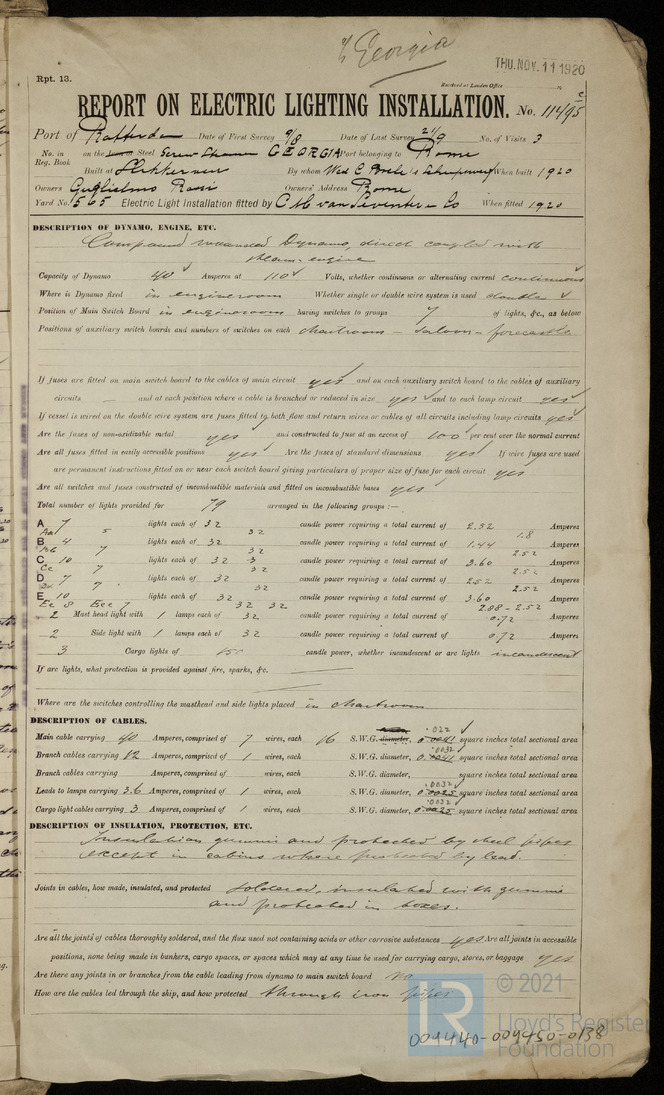 Georgia
THU. NOV. 11 1920
Rpt. 13.
Received at London Office
REPORT ON ELECTRIC LIGHTING INSTALLATION. No. 11495
Port of Date of First Survey 9/8 Date of Last Survey 21/9 No. of Visits 3
No. in Reg. Book on the Iron Steel Screw Steamer GEORGIA Port belonging to Rome
Built at Slikkerveer By whom When built 1920
Owners Guglielmo Owners' Address Rome
Yard No. 565 Electric Light Installation fitted by C H van & Co When fitted 1920
DESCRIPTION OF DYNAMO, ENGINE, ETC.
Compound wounded Dynamo, direct coupled with
steam-engine
Capacity of Dynamo 40 Amperes at 110 Volts, whether continuous or alternating current continuous
Where is Dynamo fixed in engineroom Whether single or double wire system is used double
Position of Main Switch Board in engineroom having switches to groups 7 of lights, &c., as below
Positions of auxiliary switch boards and numbers of switches on each chartroom - saloon - forecastle
If fuses are fitted on main switch board to the cables of main circuit yes and on each auxiliary switch board to the cables of auxiliary
circuits — and at each position where a cable is branched or reduced in size yes and to each lamp circuit yes
If vessel is wired on the double wire system are fuses fitted to both flow and return wires or cables of all circuits including lamp circuits yes
Are the fuses of non-oxidizable metal yes and constructed to fuse at an excess of 100 per cent over the normal current
Are all fuses fitted in easily accessible positions yes Are the fuses of standard dimensions yes If wire fuses are used
are permanent instructions fitted on or near each switch board giving particulars of proper size of fuse for each circuit yes
Are all switches and fuses constructed of incombustible materials and fitted on incombustible bases yes
Total number of lights provided for 79 arranged in the following groups :—
A 7 lights each of 32 candle power requiring a total current of 2.52 Amperes
5 32 1.8
B 4 lights each of 32 candle power requiring a total current of 1.44 Amperes
7 32 2.52
C 10 lights each of 32 candle power requiring a total current of 3.60 Amperes
Cc 7 32 2.52
D 7 lights each of 32 candle power requiring a total current of 2.52 Amperes
7 32 2.52
E 10 lights each of 32 candle power requiring a total current of 3.60 Amperes
Ec 8 Ecc 7 32 32 2.88 - 2.52
2 Mast head light with 1 lamps each of 32 candle power requiring a total current of 0.72 Amperes
2 Side light with 1 lamps each of 32 candle power requiring a total current of 0.72 Amperes
3 Cargo lights of candle power, whether incandescent or arc lights incandescent
If arc lights, what protection is provided against fire, sparks, &c.
Where are the switches controlling the masthead and side lights placed in chartroom
DESCRIPTION OF CABLES.
.022
Main cable carrying 40 Amperes, comprised of 7 wires, each 16 S.W.G. diameter, 0.0041 square inches total sectional area
.0032
Branch cables carrying 12 Amperes, comprised of 1 wires, each S.W.G. diameter, 0.0041 square inches total sectional area
Branch cables carrying Amperes, comprised of wires, each S.W.G. diameter, square inches total sectional area
.0032
Leads to lamps carrying 3.6 Amperes, comprised of 1 wires, each S.W.G. diameter, 0.0025 square inches total sectional area
.0032
Cargo light cables carrying 3 Amperes, comprised of 1 wires, each S.W.G. diameter, 0.0025 square inches total sectional area
DESCRIPTION OF INSULATION, PROTECTION, ETC.
Insulation gummi and protected by steel pipes
except in cabins where protected by lead.
Joints in cables, how made, insulated, and protected soldered, insulated with gummi
and protected in boxes.
Are all the joints of cables thoroughly soldered, and the flux used not containing acids or other corrosive substances yes Are all joints in accessible
positions, none being made in bunkers, cargo spaces, or spaces which may at any time be used for carrying cargo, stores, or baggage yes
Are there any joints in or branches from the cable leading from dynamo to main switch board no
How are the cables led through the ship, and how protected through iron pipes
© 2021
Lloyd's Register
Foundation
004440-009450-0138